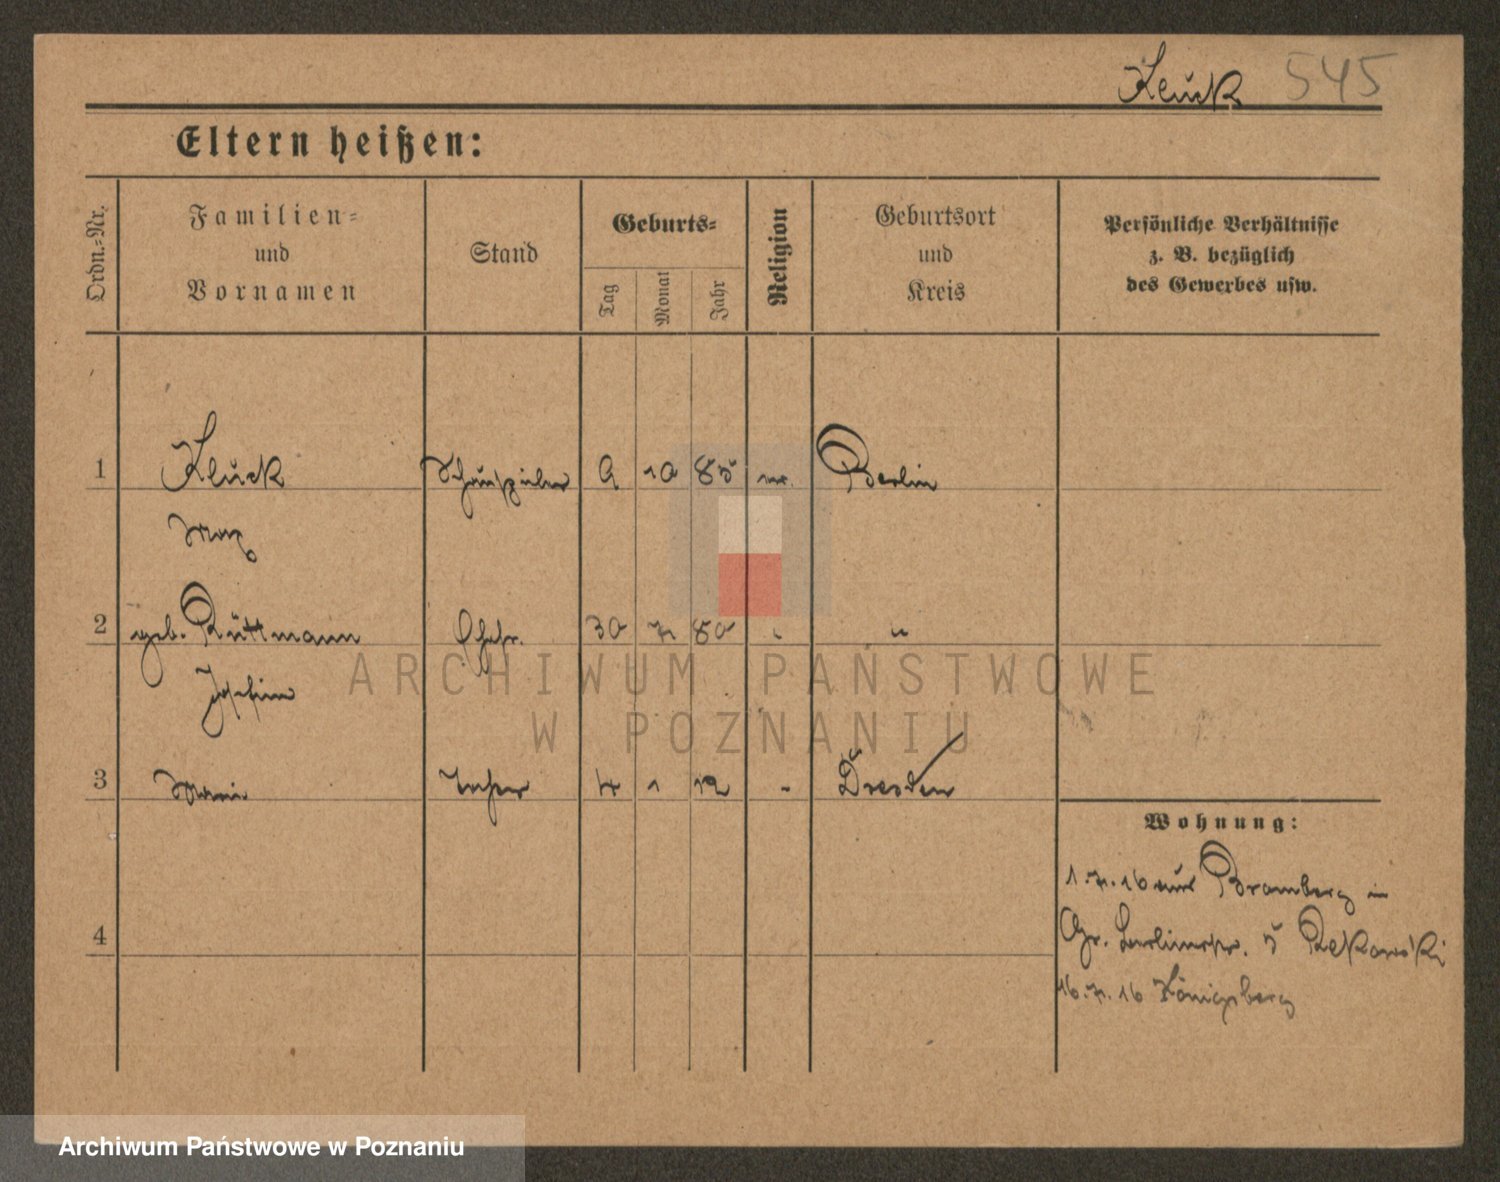 Kluck 545
Eltern heißen:
Ordn.-Nr.
Familien-
und
Vornamen
Stand
Geburts-
Tag
Monat
Jahr
Religion
Geburtsort
und
Kreis
Persönliche Verhältnisse
z. B. bezüglich
des Gewerbes usw.
1 Kluck Schauspieler 9 10 85 Berlin
Max
2 geb. Rüttmann Ehefr. 30 7 80 " "
Josefine
3 Marie Tochter 4 1 12 - Dresden
4
Wohnung:
1.7.16 aus Bromberg in
Gr. Berlinerstr. 5 Rekowski
16.7.16 Königsberg
ARCHIWUM PAŃSTWOWE
W POZNANIU
Archiwum Państwowe w Poznaniu